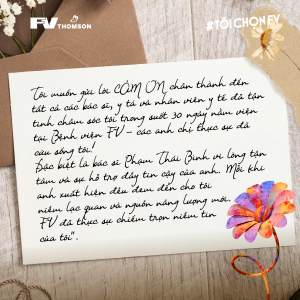 FV THOMSON
#TÔICHỌNFV
Tôi muốn gửi lời CẢM ƠN chân thành đến
tất cả các bác sĩ, y tá và nhân viên y tế đã tận
tình chăm sóc tôi trong suốt 30 ngày nằm viện
tại Bệnh viện FV – các anh chị thực sự đã
cứu sống tôi!
Đặc biệt là bác sĩ Phạm Thái Bình vì lòng tận
tâm và sự hỗ trợ đầy tin cậy của anh. Mỗi khi
anh xuất hiện đều đem đến cho tôi
niềm lạc quan và nguồn năng lượng mới.
FV đã thực sự chiếm trọn niềm tin
của tôi".